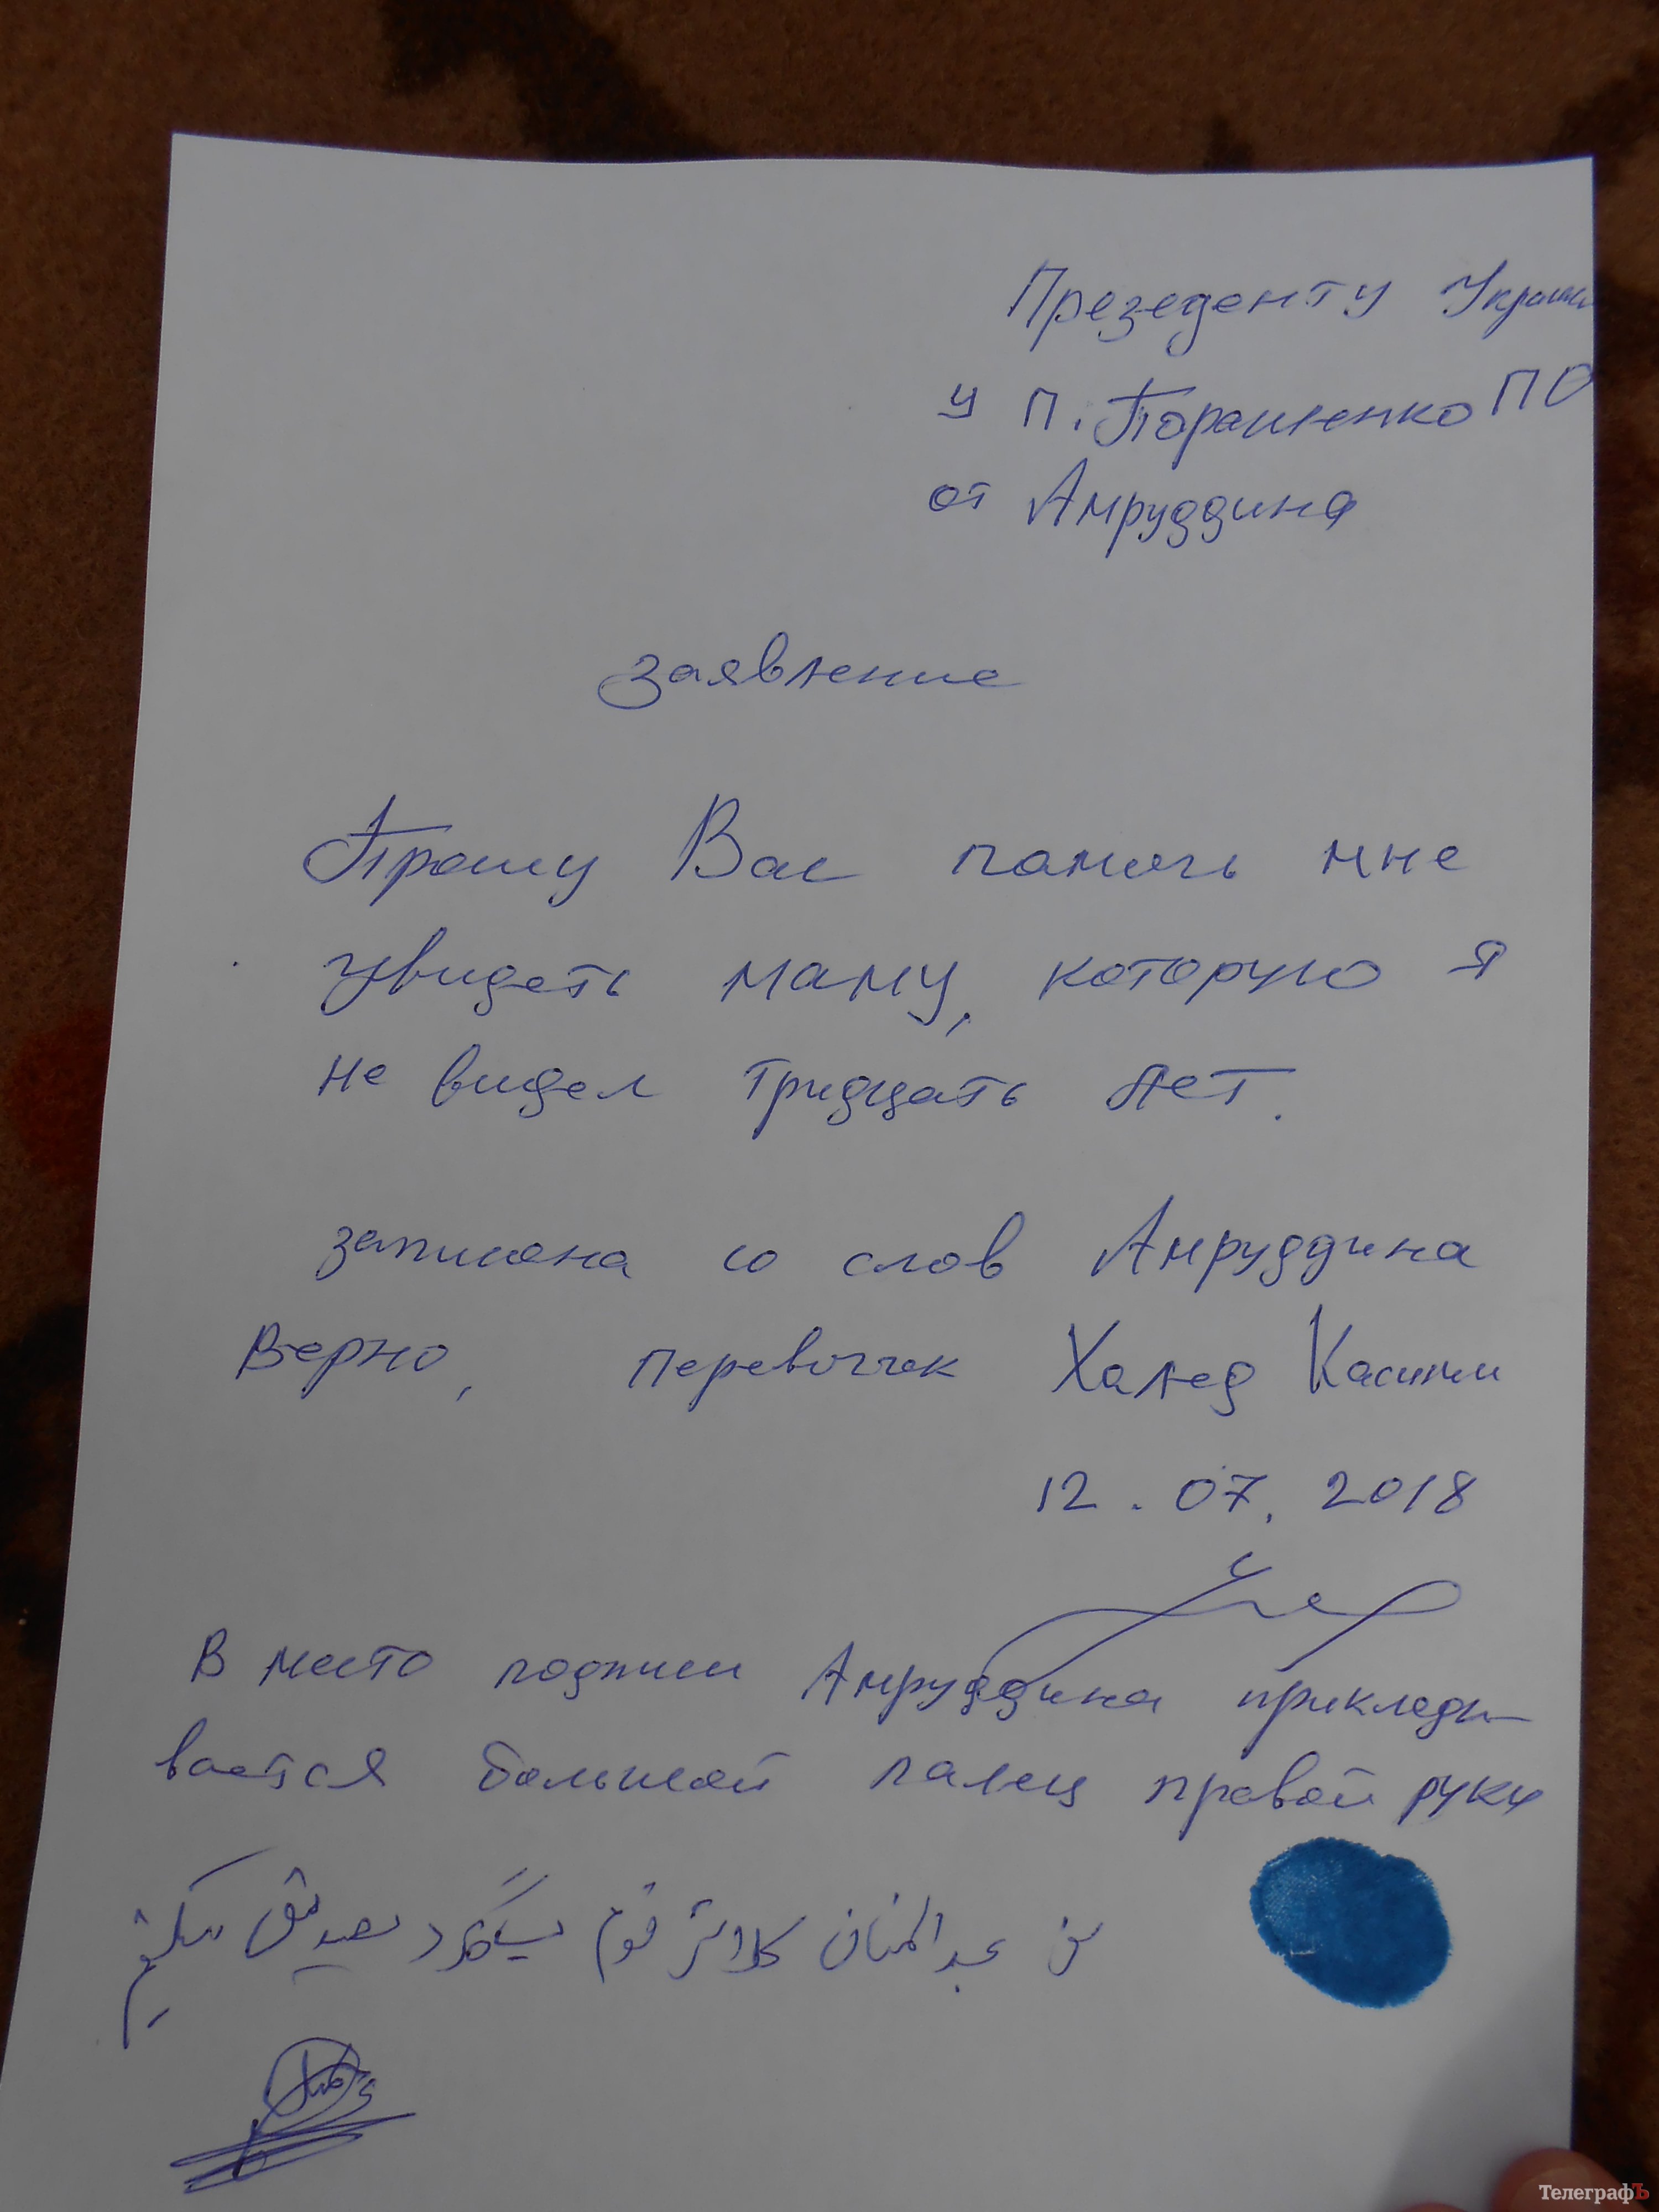 Презеденту
у П. Порашенко ПО
от Амруддина
заявление
Прошу Вас памочь мне
увидеть маму, которую я
не видел тридцать лет.
записана со слов Амруддина
Верно, перевотчек Халед Касими
12.07.2018
В место подписи Амруддина прикледы-
вается большой палец правой руки
من عبدالمنان کلانتر قوم میگردد تصدیق میکنم
ТелеграфЪ